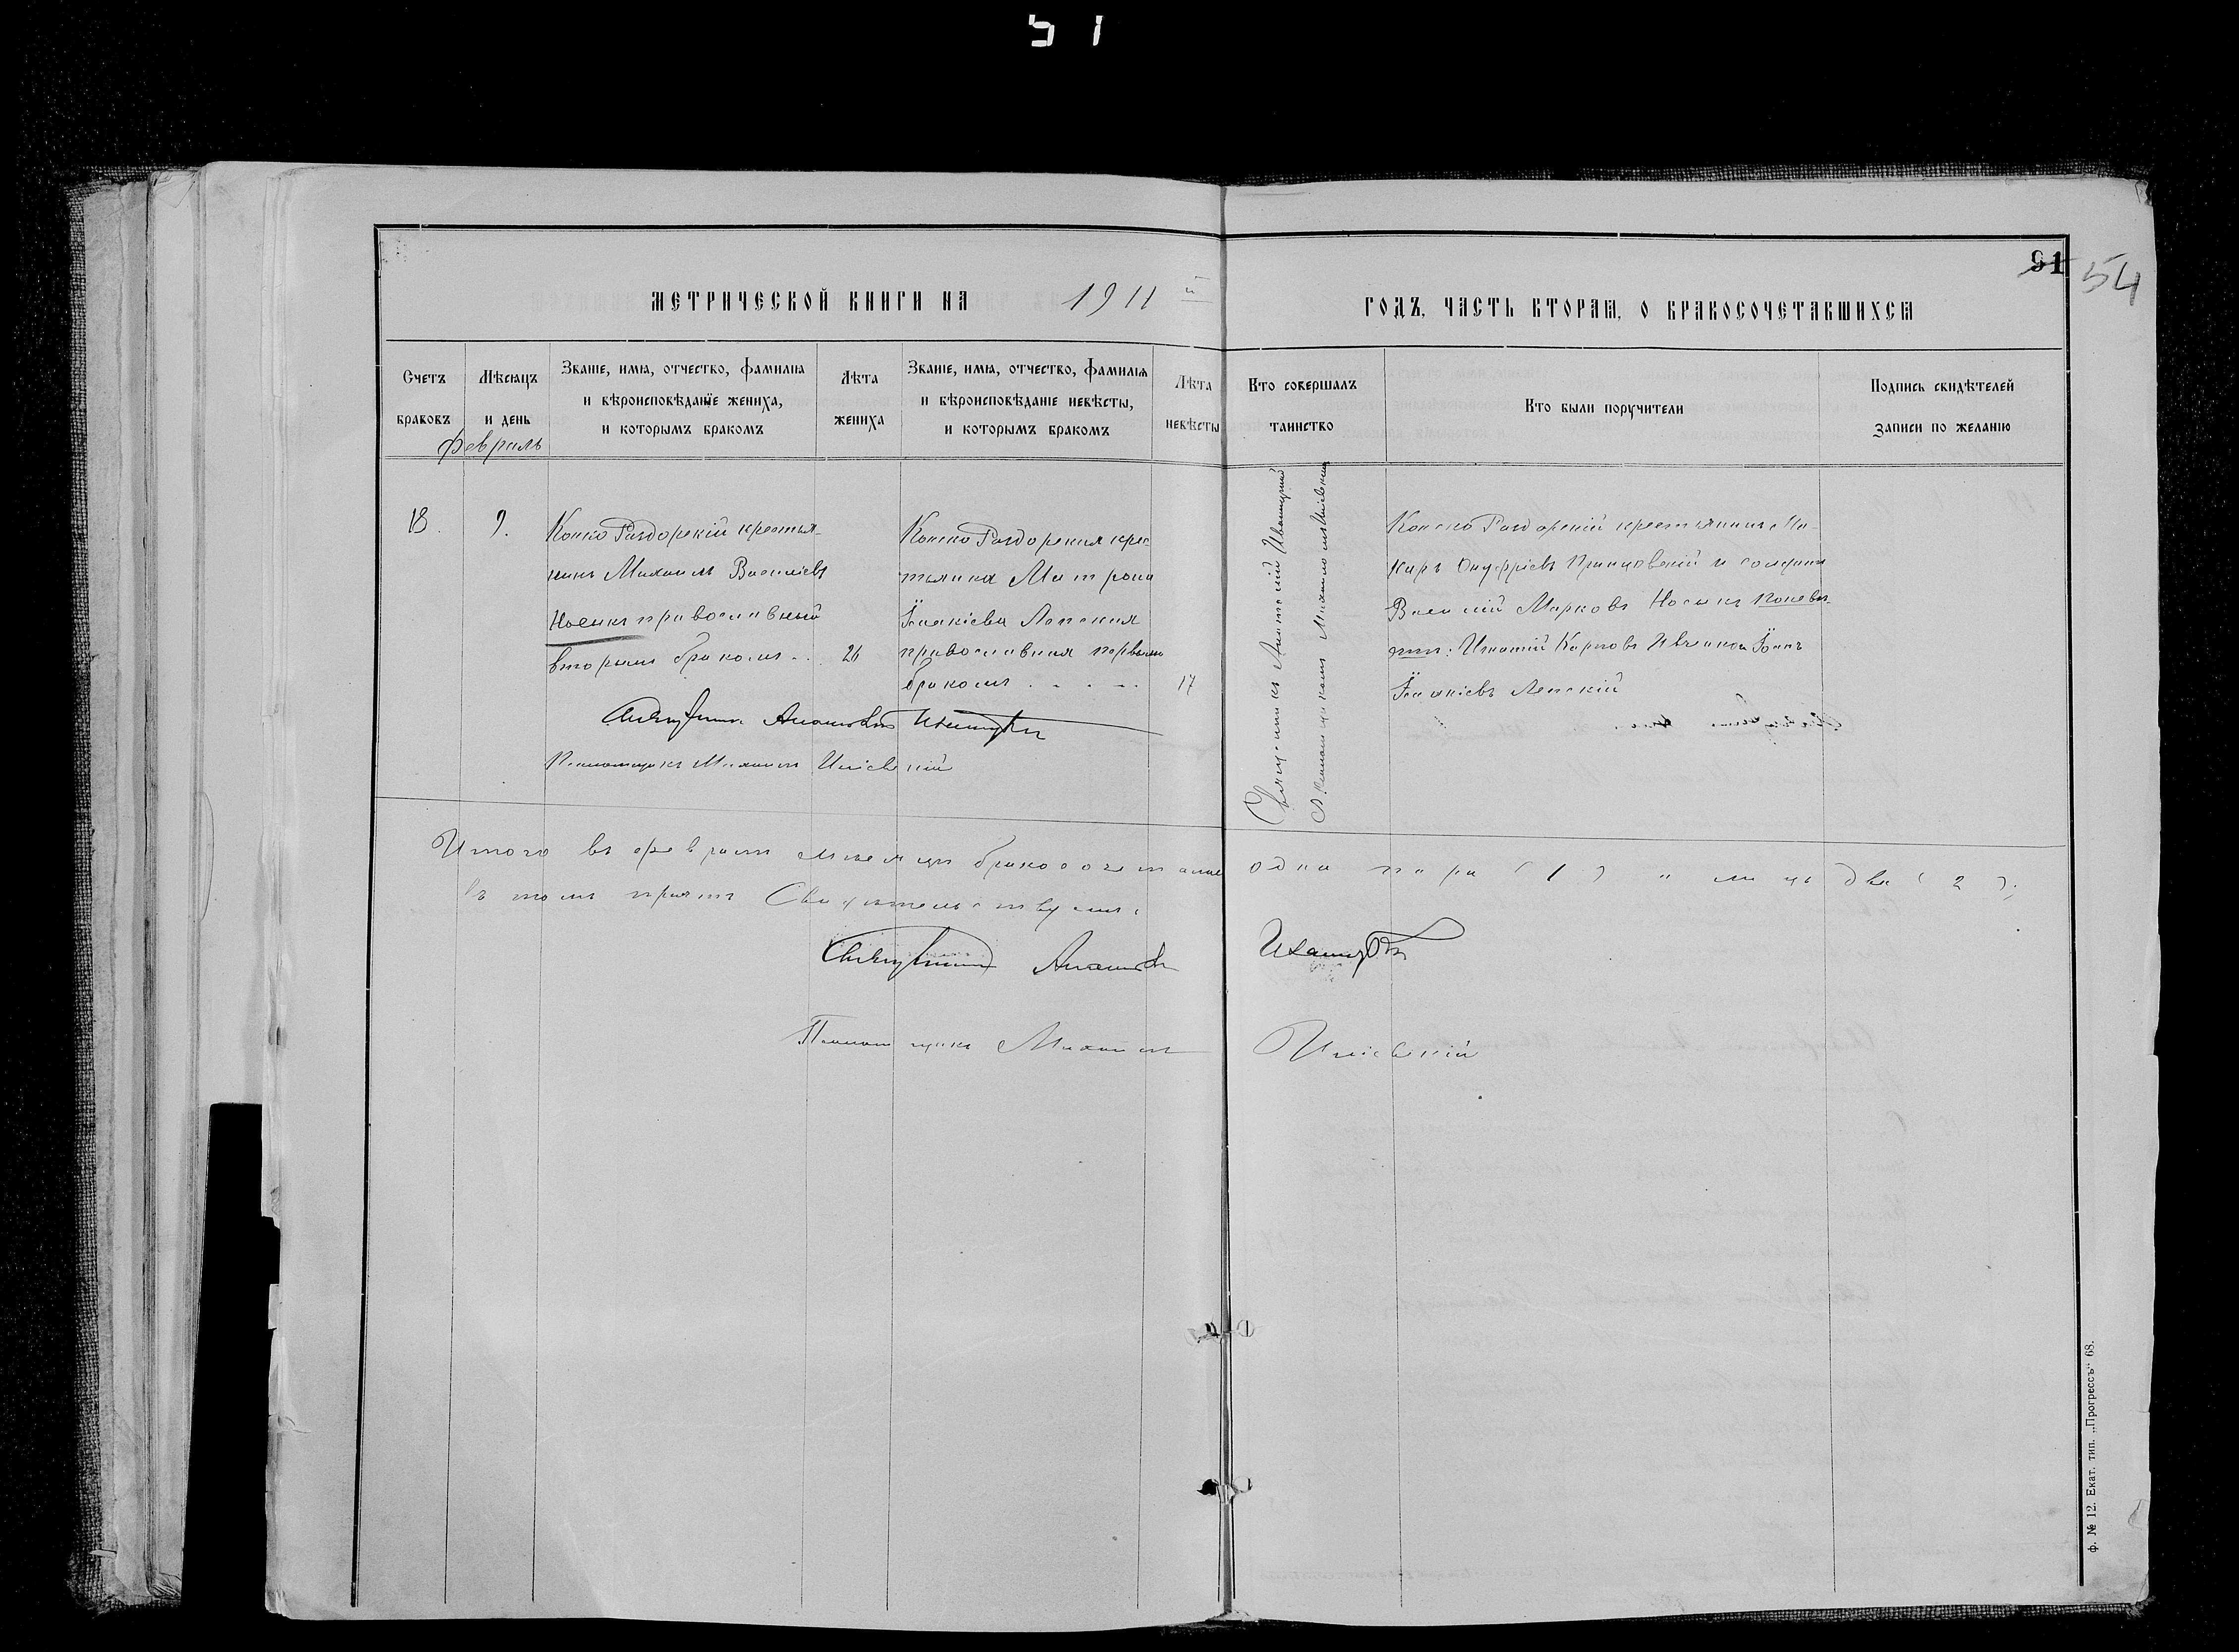 51
91 54
МЕТРИЧЕСКОЙ КНИГИ НА 1911 й ГОДЪ, ЧАСТЬ ВТОРАЯ, О БРАКОСОЧЕТАВШИХСЯ
Счетъ браковъ
Мѣсяцъ и день
Званіе, имя, отчество, фамилія и вѣроисповѣданіе жениха, и которымъ бракомъ
Лѣта жениха
Званіе, имя, отчество, фамилія и вѣроисповѣданіе невѣсты, и которымъ бракомъ
Лѣта невѣсты
Кто совершалъ таинство
Кто были поручители
Подпись свидѣтелей записи по желанію
февраль
18.
9.
Конско Раздорскій крестья-
нинъ Михаилъ Васильевъ
Носикъ православный
вторымъ бракомъ . .
26
Конско Раздорская крес
тьянка Матрона
Исаакіева Лепская
православная первымъ
бракомъ . . . .
17
Священникъ
Псаломщикомъ Михаиломъ
Конско Раздорскій крестьянинъ Ма-
каръ Онуфріевъ и солдатъ
Василій Марковъ Носикъ Поневѣ-
стѣ: Игнатій Карповъ Іоаннъ
Исаакіевъ Лепскій
Священникъ
Псаломщикъ Михаилъ
Итого въ февралѣ мѣсяцѣ бракосочеталась одна пара (1) а лицъ два (2);
въ томъ Свидѣтельствуемъ:
Священникъ
Псаломщикъ Михаилъ
ф. № 12. Екат. тип. „Прогрессъ“ 68.